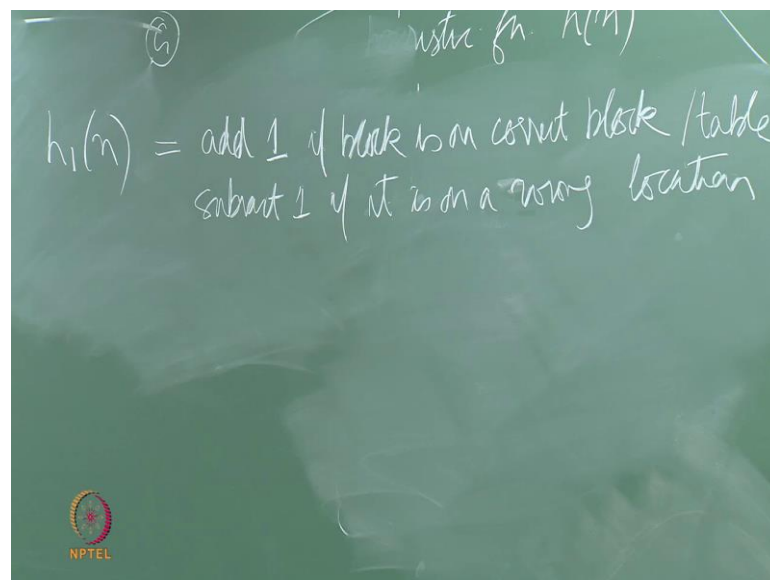 G
fn. h(n)
h₁(n) = add 1 if block is on correct block / table
subract 1 if it is on a wrong location
NPTEL